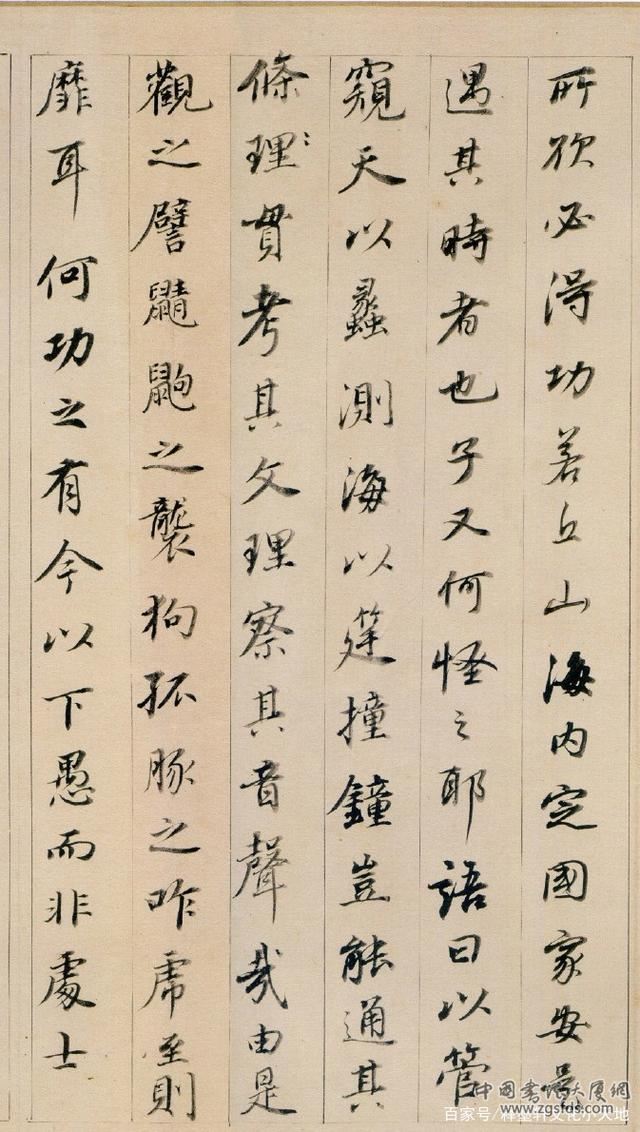 所欲必得功若丘山海内定國家安是
遇其時者也子又何怪之耶語曰以管
窺天以蠡測海以筳撞鐘豈能通其
條理貫考其文理察其音聲哉由是
觀之譬鼱鼩之襲狗孤豚之咋虎至則
靡耳何功之有今以下愚而非處士
中國書法大厦網
www.zgsfds.com
百家号/梓墨轩文化小天地